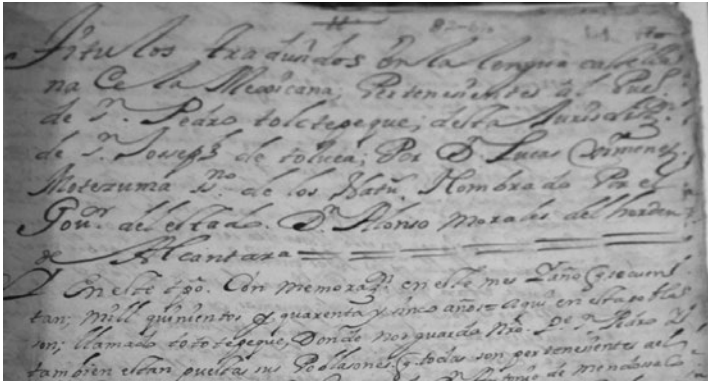 Titulos traducidos en la lengua castella
na de la Mexicana, Pertenesientes al Puel.
de S. Pedro totoltepeque, desta Jurisdisn.
de S. Joseph de toluca; Por D. Lucas Ximenez
Motezuma Yno. de los Natu. Nombrado Por el
Govr. del estado. Dn. Alonso Morales del
de Alcantara
En este tpo. Con memoraz. en este mes y año q se cuen
tan; mill quinientos y quarenta y sinco años aqui en esta
llamado totoltepeque, Donde nos guarda Nro. Pe. Sn. Pedro
tambien estan puestas sus Poblasones q todas son pertenesientes al
de mendosa